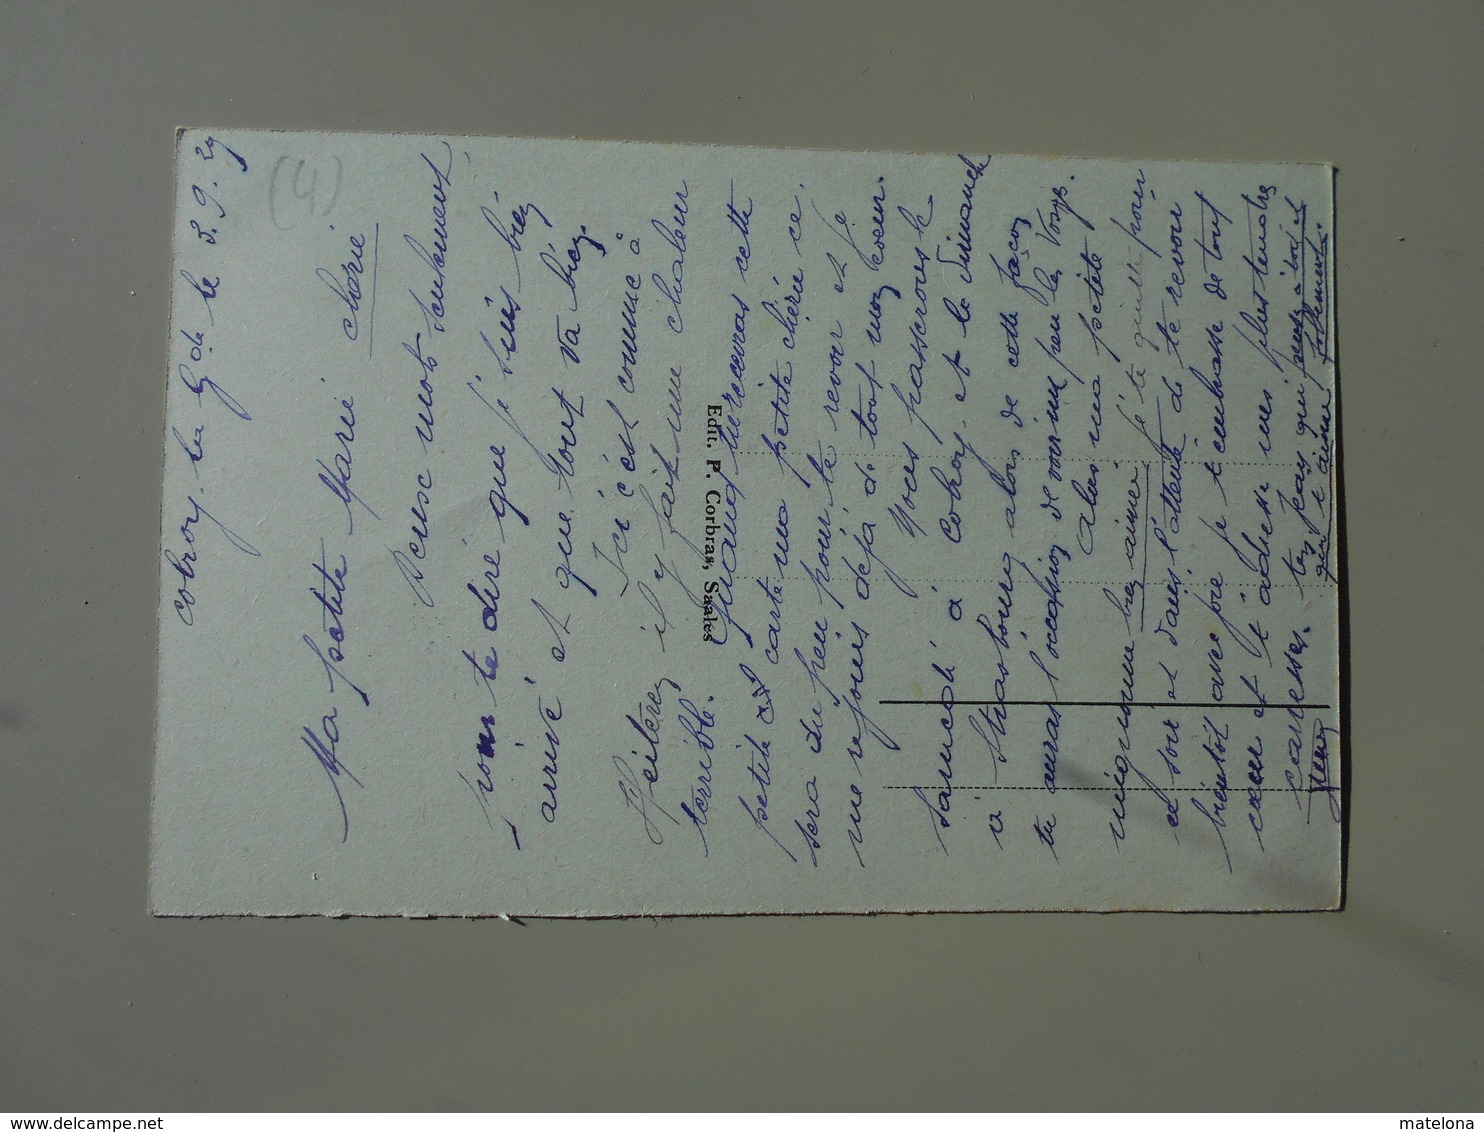 Cobroy-la-Gde le 3.9.29
(4)
Ma petite Marie chérie
Deux mots seulement
pour te dire que je suis bien
arrivé et que tout va bien.
Ici c'est comme à
il y fait une chaleur
terrible. Quand tu recevras cette
petite carte ma petite chérie ce
sera du peu pour te revoir et je
me réjouis déjà de tout mon coeur.
Nous passerons le
samedi à Cobroy et le dimanche
à Strasbourg alors de cette façon
tu auras l'occasion de voir un peu les Vosges.
Alors ma petite
mignonne bien aimée je te quitte pour
ce soir et dans l'attente de te revoir
bientôt ma je t'embrasse de tout
coeur et t'adresse mes plus tendres
caresses. ton Jean qui pense à toi et
qui t'aime follement.
Jean
Edit. P. Corbras, Saales
matelona
www.delcampe.net